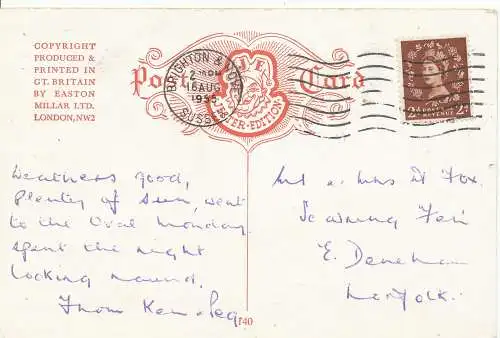 COPYRIGHT
PRODUCED &
PRINTED IN
GT. BRITAIN
BY EASTON
MILLAR LTD.
LONDON, NW2
Post Card
BRIGHTON & HOVE
16 AUG
1955
SUSSEX
POSTAGE
REVENUE
Weathers good,
Plenty of sun, went
to the Oval Monday.
spent the night
looking round.
From Ken & Peg
Mr & Mrs D Fox.
Scarning Fen
E. Dereham
Norfolk.
140